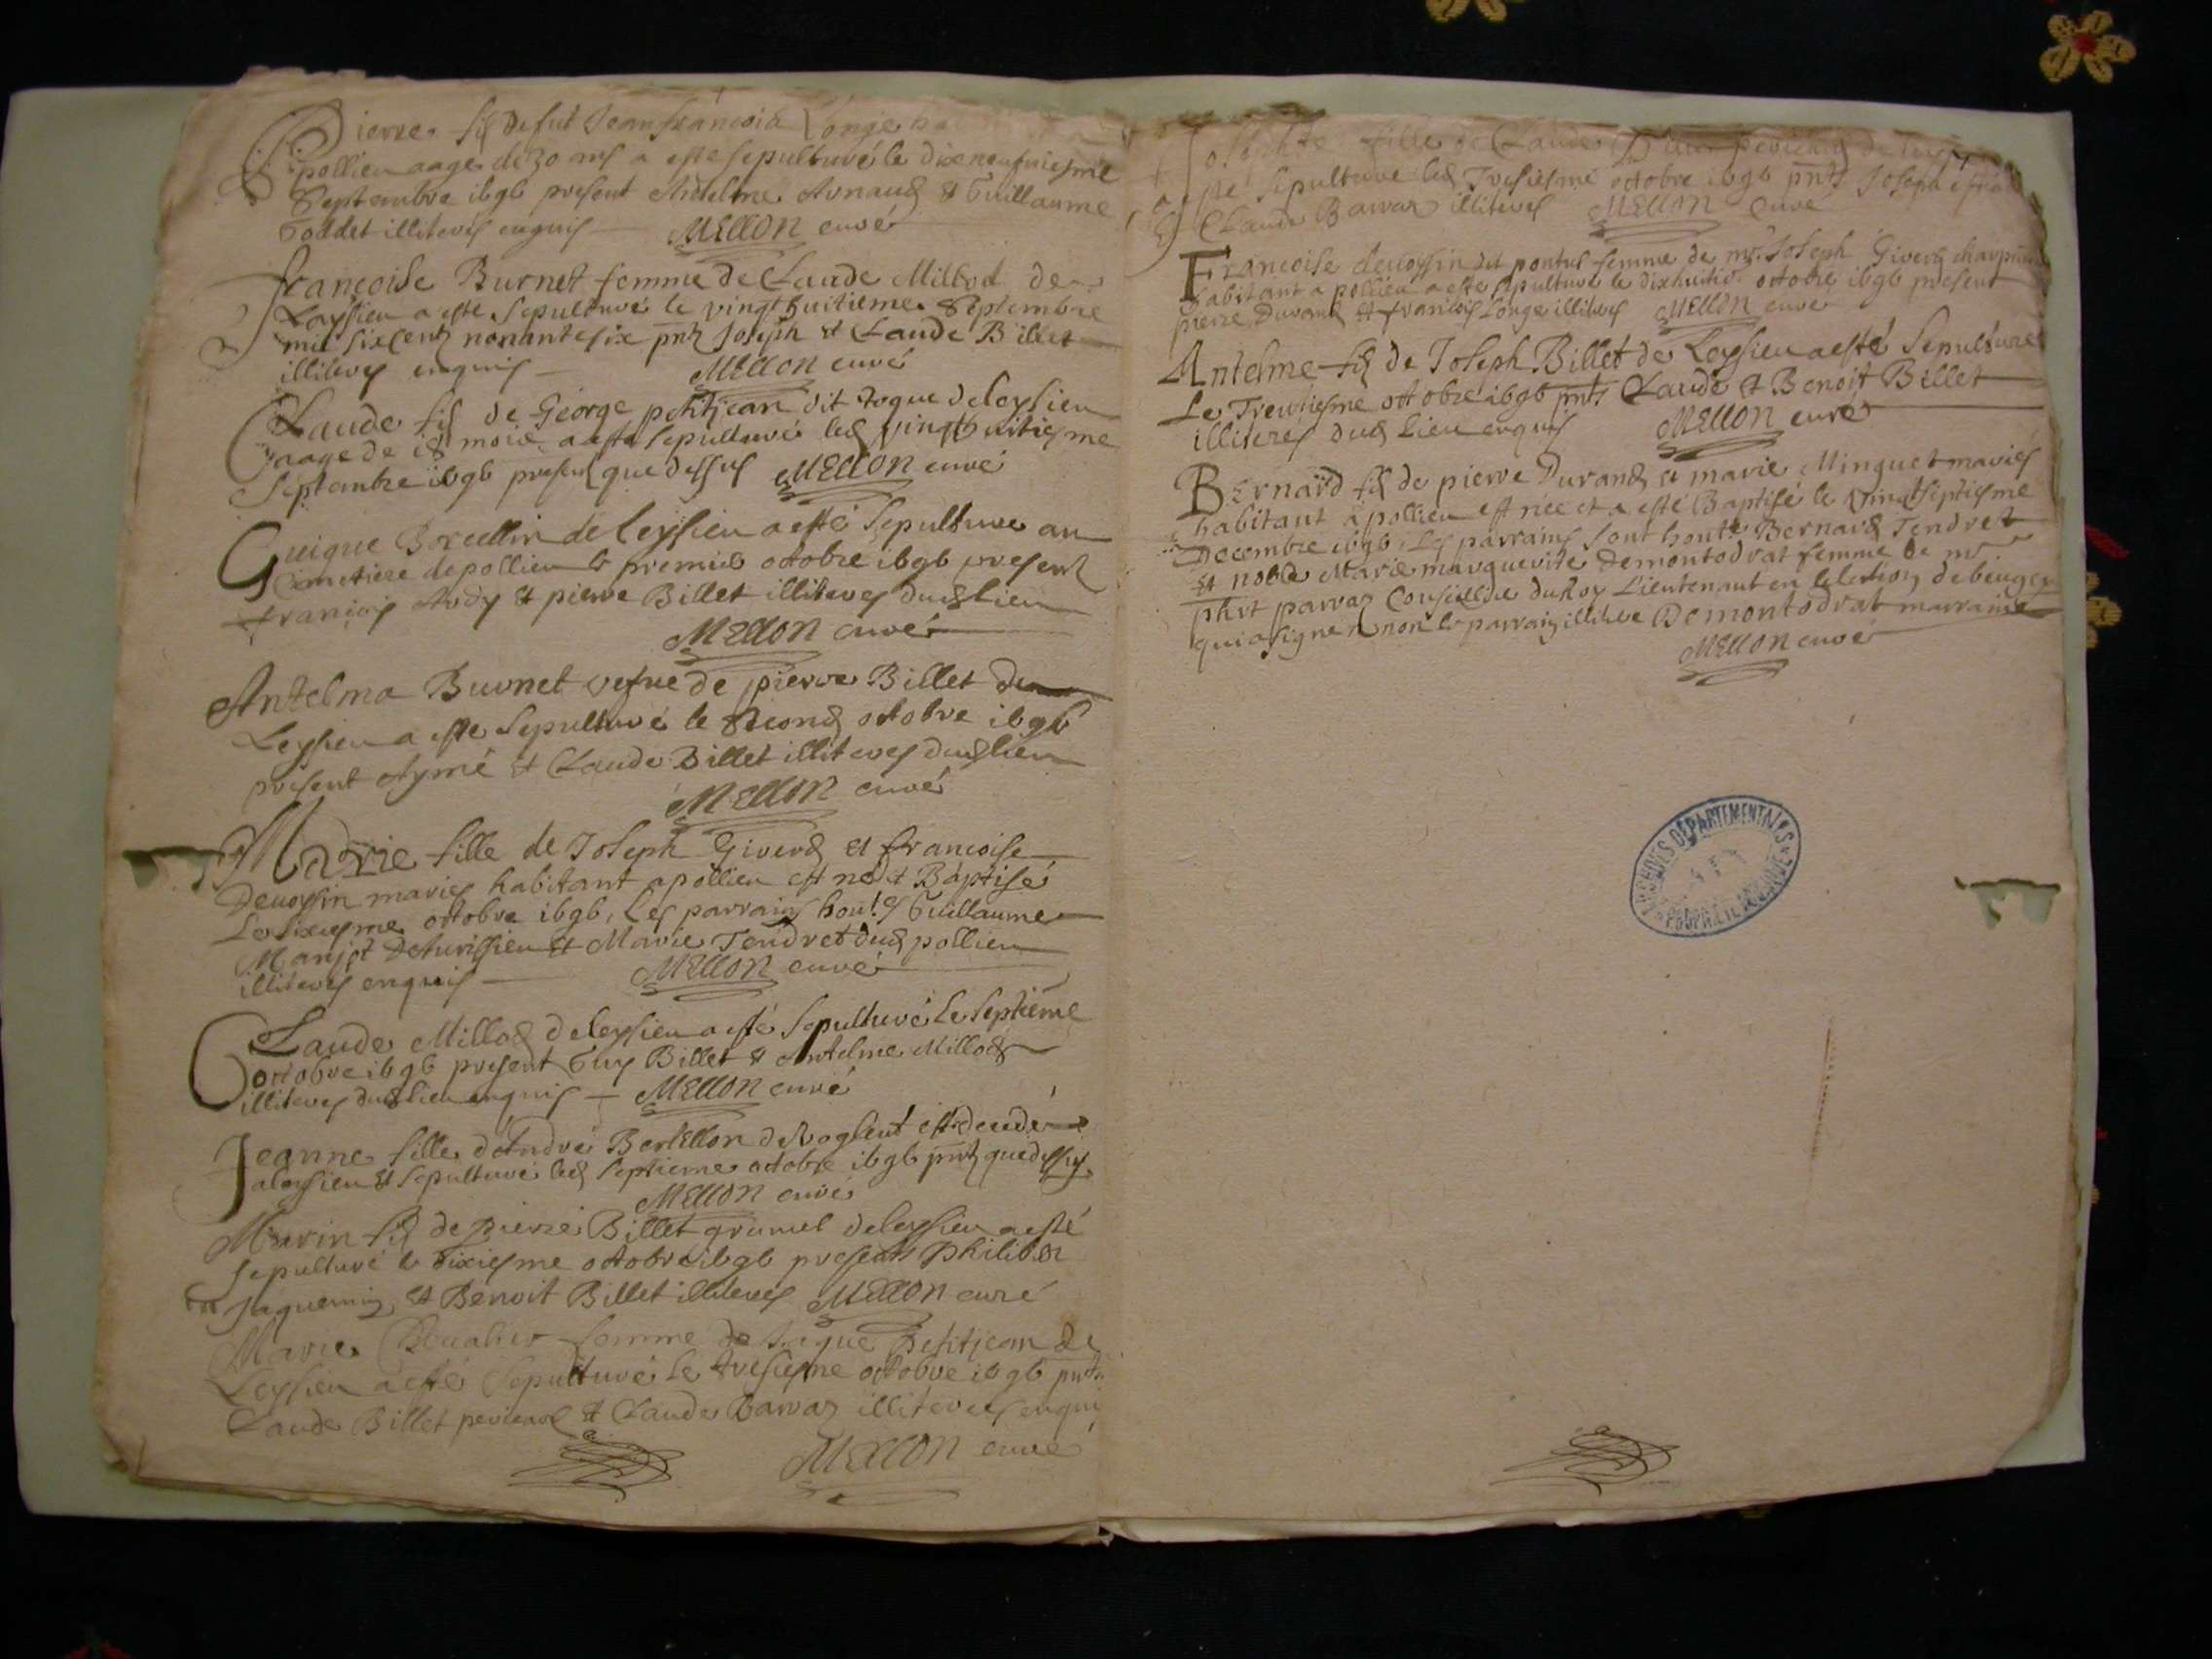 Pierre fils de fut Jean françois Longe
pollieu aage de 30 ans a esté sepulturé le dixneufuiesme
Septembre 1696 present Antelme Arnaud et Guillaume
Goddet illiterés enquis MELLON curé
françoise Burnet femme de Claude Milliod de
Leysieu a esté sepulturé le vingthuitieme Septembre
mil sixcent nonantesix pnt Joseph et Claude Billet
illiteres enquis MELLON curé
Claude fils de George petitjean dit de leysieu
aage de 18 mois a esté sepulturé led vingthuitiesme
Septembre 1696 present que dessus MELLON curé
Guigue Borcellin de leysieu a esté Sepulture au
Cimetiere de pollieu le premier octobre 1696 present
françois Andy et pierre Billet illiteres dud lieu
MELLON curé
Antelma Burnet vefue de pierre Billet de
Leysieu a esté Sepulturé le second octobre 1696
present Aymé et Claude Billet illiteres dud lieu
MELLON curé
Marie fille de Joseph Giverd et francoise
Deuoysin mariés habitant a pollieu est né et Baptisé
Le sixiesme octobre 1696, Les parrains hont Guillaume
et Marie Tendret dud pollieu
illiteres enquis MELLON curé
Claude Milliod de leysieu a esté sepulturé Le Septieme
octobre 1696 present Guy Billet et Antelme Milliod
illiteres dud lieu enquis MELLON curé
Jeanne fille d'André Bertellon de est decedé
a leysieu et sepulturé led septieme octobre 1696 pnt que dessus
MELLON curé
fils de pierre Billet grumel de leysieu a esté
sepulturé le dixiesme octobre 1696 presents philibert
Jaquemin et Benoit Billet illiteres MELLON curé
Marie femme de petitjean de
Leysieu a esté Sepulturé le tresiesme octobre 1696 pnt
Claude Billet et Claude Barraz illiteres enquis
MELLON curé
Josephte fille de Claude
a esté sepulturé led Tresiesme octobre 1696 pnts Joseph
et Claude Barraz illiteres MELLON curé
Francoise deuoysin femme de mr Joseph Giverd
habitant a pollieu a esté sepulturé le dixhuitie octobre 1696 present
pierre Durand et françois Longe illiteres MELLON curé
Antelme fils de Joseph Billet de Leysieu a esté Sepulturé
Le Trentiesme octobre 1696 pnts Claude et Benoit Billet
illiterés dud Lieu enquis MELLON curé
Bernard fils de pierre Durand et marie Minguet mariés
habitant a pollieu est née et a esté Baptisé le Vingtseptiesme
Decembre 1696. Les parrains sont honte Bernard Tendret
et noble Marie marguerite Demontodrat femme de mr
phrt parraz Conseillie du Roy Lieutenant en lelection de beugey
qui a signe et non le parrain illitere Demontodrat marraine
MELLON curé
ARCHIVES DEPARTEMENTALES
PROPRIETE PUBLIQUE